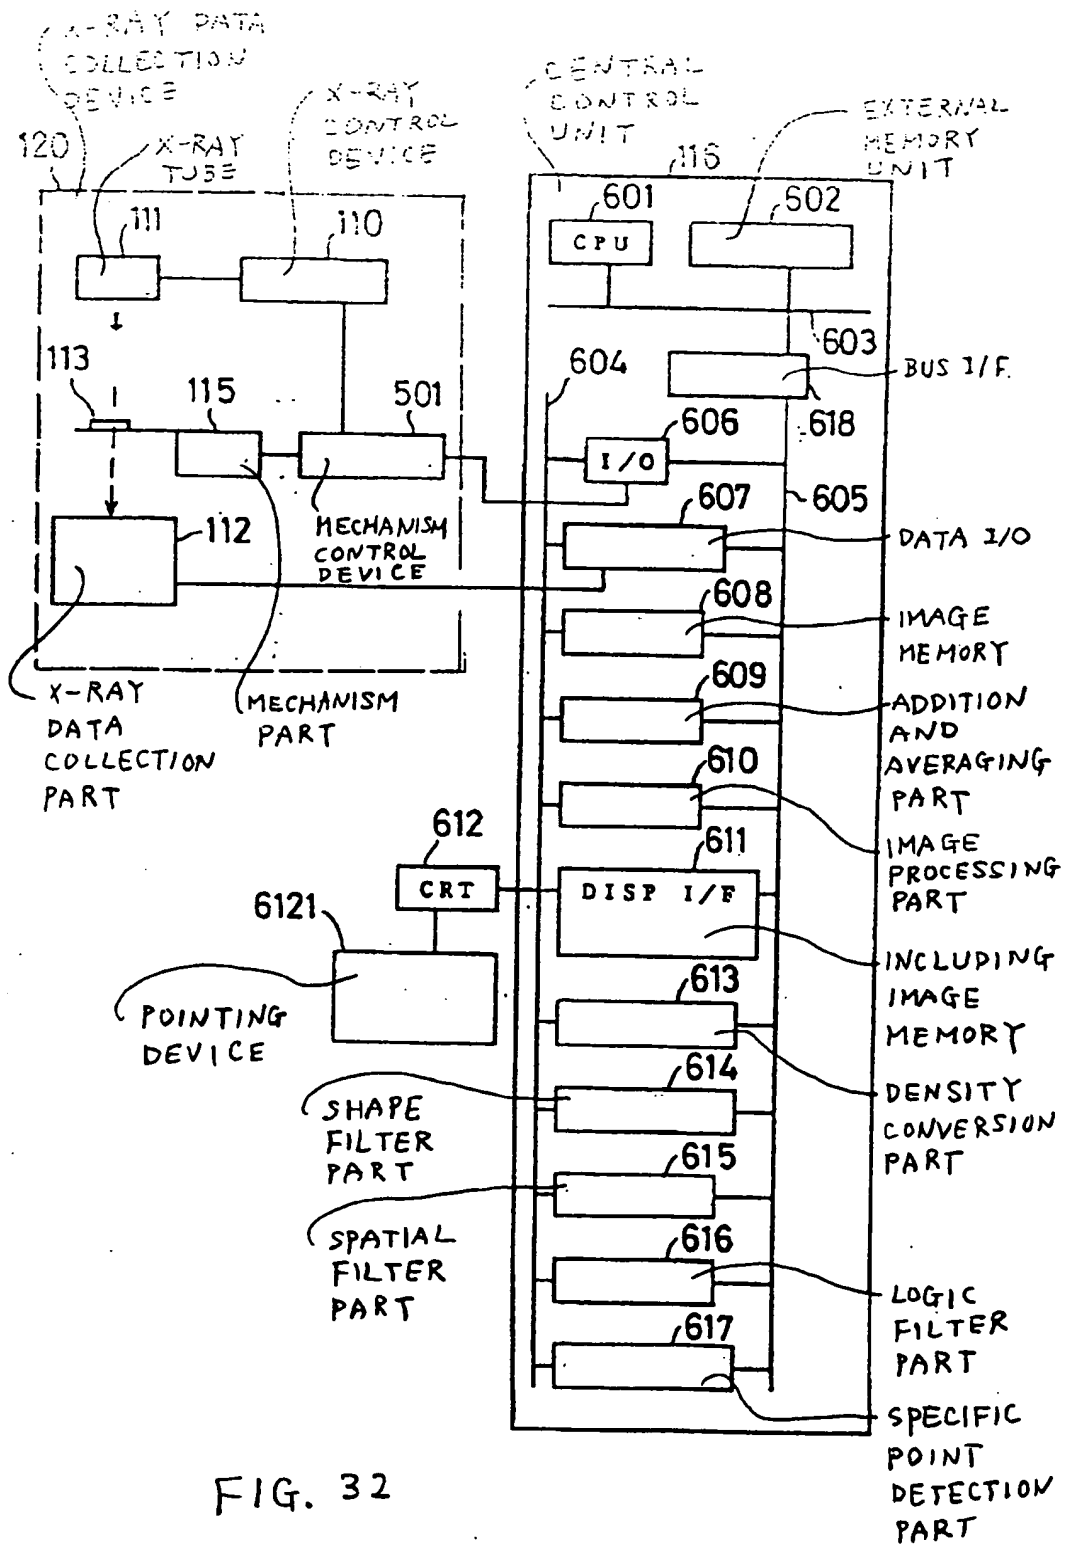 X-RAY DATA
COLLECTION
DEVICE
120
X-RAY
TUBE
X-RAY
CONTROL
DEVICE
CENTRAL
CONTROL
UNIT
116
EXTERNAL
MEMORY
UNIT
111
110
601
CPU
602
603
113
115
501
604
BUS I/F.
618
606
I/O
605
112
MECHANISM
CONTROL
DEVICE
607
DATA I/O
608
IMAGE
MEMORY
X-RAY
DATA
COLLECTION
PART
MECHANISM
PART
609
ADDITION
AND
AVERAGING
PART
610
IMAGE
PROCESSING
PART
612
CRT
611
DISP I/F
INCLUDING
IMAGE
MEMORY
6121
POINTING
DEVICE
613
DENSITY
CONVERSION
PART
614
SHAPE
FILTER
PART
615
SPATIAL
FILTER
PART
616
LOGIC
FILTER
PART
617
SPECIFIC
POINT
DETECTION
PART
FIG. 32